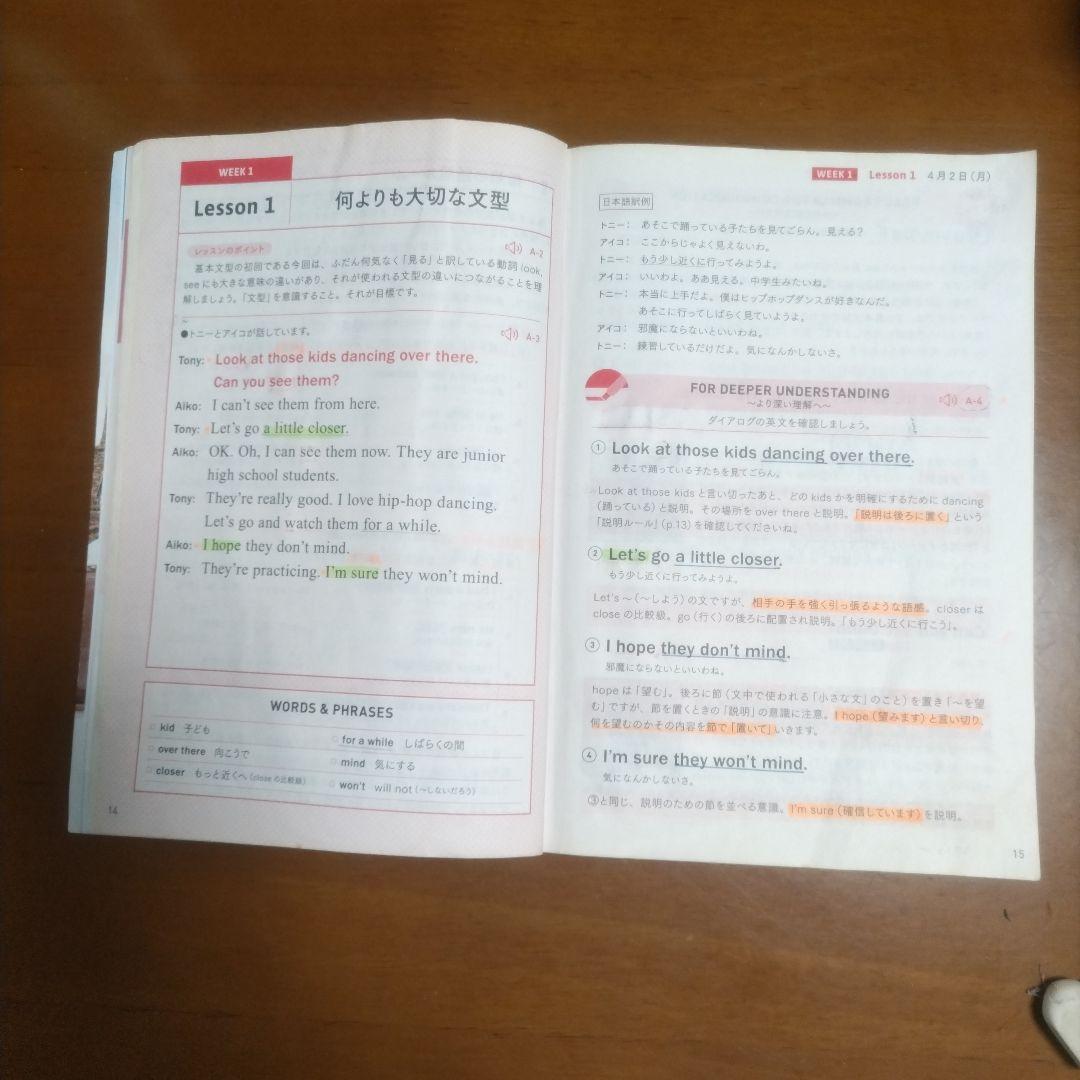 WEEK 1
Lesson 1
何よりも大切な文型
レッスンのポイント
A-2
基本文型の初回である今回は、ふだん何気なく「見る」と訳している動詞 look,
see にも大きな意味の違いがあり、それが使われる文型の違いにつながることを理
解しましょう。「文型」を意識すること。それが目標です。
●トニーとアイコが話しています。
A-3
Tony: Look at those kids dancing over there.
Can you see them?
Aiko: I can't see them from here.
Tony: Let's go a little closer.
Aiko: OK. Oh, I can see them now. They are junior
high school students.
Tony: They're really good. I love hip-hop dancing.
Let's go and watch them for a while.
Aiko: I hope they don't mind.
Tony: They're practicing. I'm sure they won't mind.
WORDS & PHRASES
kid 子ども
over there 向こうで
closer もっと近くへ (close の比較級)
for a while しばらくの間
mind 気にする
won't will not (〜しないだろう)
14
WEEK 1 Lesson 1 4月2日(月)
日本語訳例
トニー: あそこで踊っている子たちを見てごらん。見える?
アイコ: ここからじゃよく見えないわ。
トニー: もう少し近くに行ってみようよ。
アイコ: いいわよ。ああ見える。中学生みたいね。
トニー: 本当に上手だよ。僕はヒップホップダンスが好きなんだ。
あそこに行ってしばらく見ていようよ。
アイコ: 邪魔にならないといいわね。
トニー: 練習しているだけだよ。気になんかしないさ。
FOR DEEPER UNDERSTANDING
〜より深い理解へ〜
A-4
ダイアログの英文を確認しましょう。
① Look at those kids dancing over there.
あそこで踊っている子たちを見てごらん。
Look at those kids と言い切ったあと、どの kids かを明確にするために dancing
(踊っている)と説明。その場所を over there と説明。「説明は後ろに置く」という
「説明ルール」(p.13)を確認してくださいね。
② Let's go a little closer.
もう少し近くに行ってみようよ。
Let's 〜(〜しよう)の文ですが、相手の手を強く引っ張るような語感。closer は
close の比較級。go(行く)の後ろに配置され説明。「もう少し近くに行こう」。
③ I hope they don't mind.
邪魔にならないといいわね。
hope は「望む」。後ろに節(文中で使われる「小さな文」のこと)を置き「〜を望
む」ですが、節を置くときの「説明」の意識に注意。I hope(望みます)と言い切り、
何を望むのかその内容を節で「置いて」いきます。
④ I'm sure they won't mind.
気になんかしないさ。
③と同じ、説明のための節を並べる意識。I'm sure(確信しています)を説明。
15